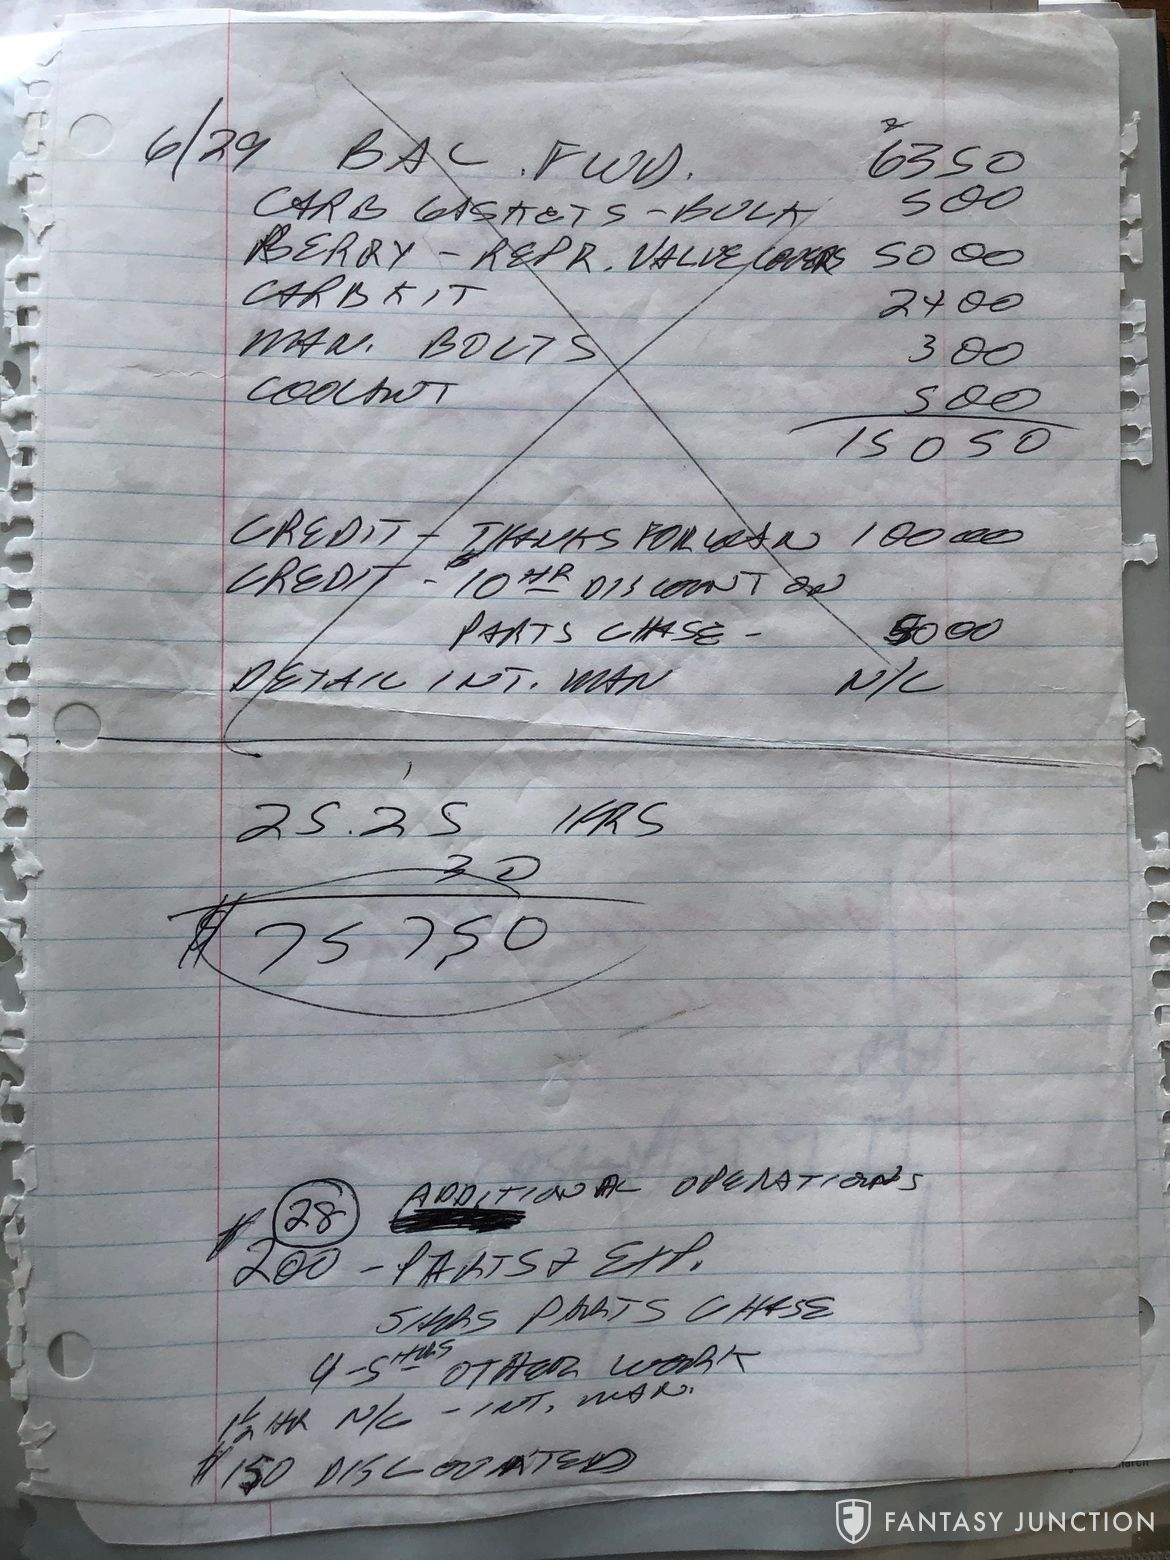 2
6/29 BAL. FWD. 6350
CARB GASKETS - BULK 500
BERRY - REPR. VALVE COVERS 5000
CARB KIT 2400
MAN. BOLTS 300
COOLANT 500
15050
CREDIT - THANKS FOR LOAN 10000
CREDIT - 10 HR DISCOUNT ON
PARTS CHASE - 5000
DETAIL INT. MAN N/C
25.25 HRS
30
$ 757.50
28 ADDITIONAL OPERATIONS
$ 200 - PARTS & EXP.
5 HRS PARTS CHASE
4-5 HRS OTHER WORK
1 1/2 HR N/C - INT. MAN.
$150 DISCOUNTED
FANTASY JUNCTION